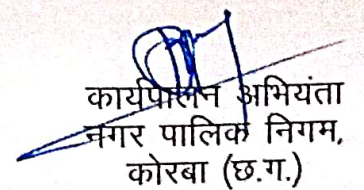 कार्यपालन अभियंता
नगर पालिक निगम,
कोरबा (छ.ग.)